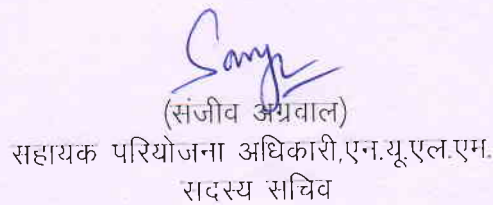 (संजीव अग्रवाल)
सहायक परियोजना अधिकारी,एन.यू.एल.एम.
सदस्य सचिव